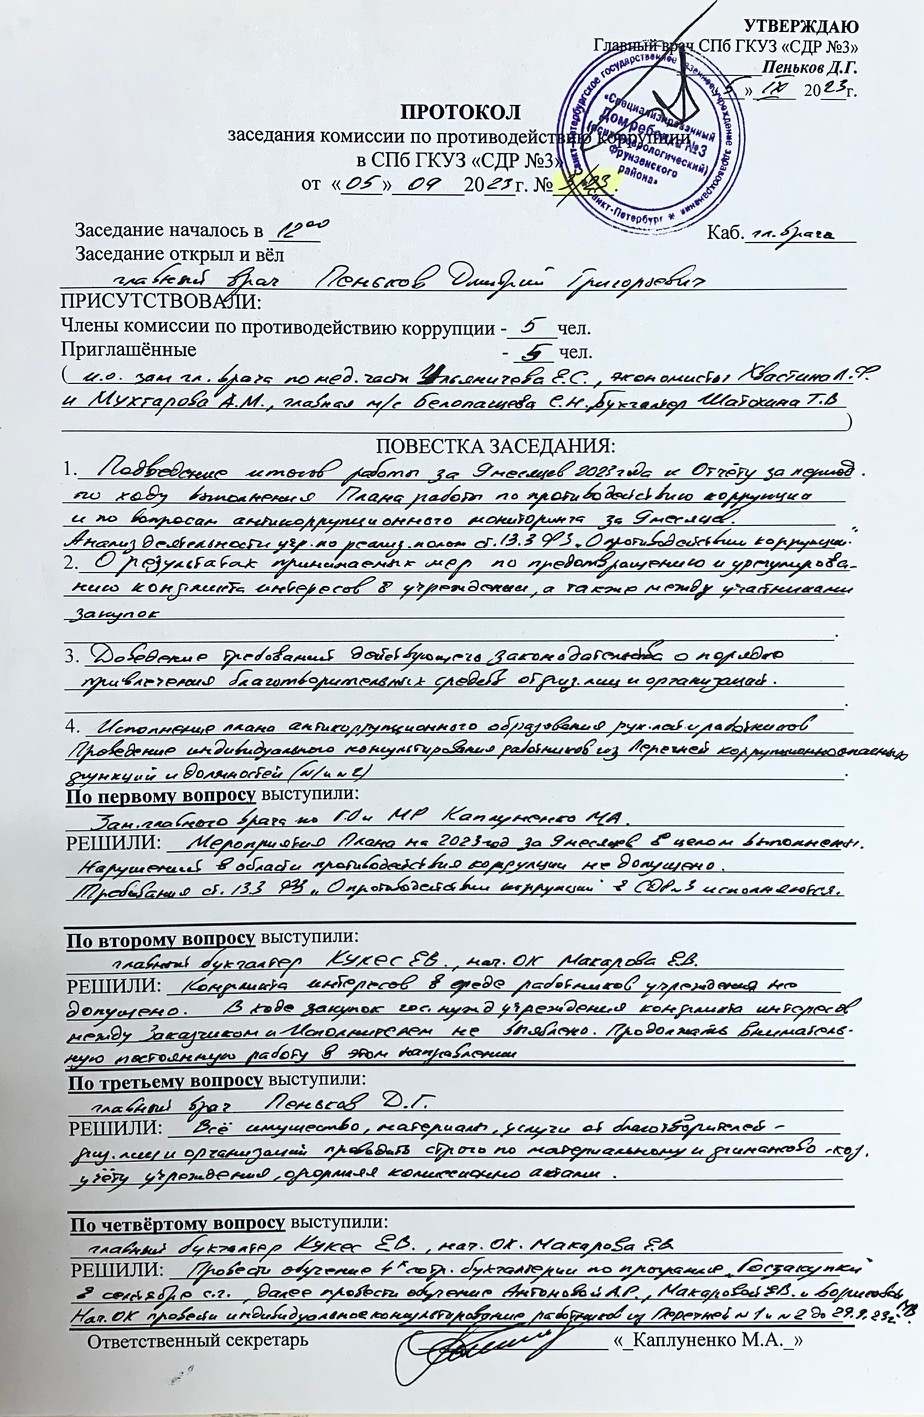 УТВЕРЖДАЮ
Главный врач СПб ГКУЗ «СДР №3»
Пеньков Д.Г.
5 » IX 2023г.
Санкт-Петербургское государственное казенное учреждение здравоохранения
«Специализированный
Дом ребенка №3
(психоневрологический)
Фрунзенского
района»
Санкт-Петербург
ПРОТОКОЛ
заседания комиссии по противодействию коррупции
в СПб ГКУЗ «СДР №3»
от «05» 09 2023г. № 3/23.
Заседание началось в 12⁰⁰ Каб. гл. врача
Заседание открыл и вёл
главный врач Пеньков Дмитрий Григорьевич
ПРИСУТСТВОВАЛИ:
Члены комиссии по противодействию коррупции - 5 чел.
Приглашённые - 5 чел.
( и.о. зам гл. врача по мед. части Ульяничева Е.С., экономисты Хвастина Л.Ф.
и Мухтарова А.М., главная м/с Белопашцева С.Н. Бухгалтер Шатохина Т.В
)
ПОВЕСТКА ЗАСЕДАНИЯ:
1. Подведение итогов работы за 9 месяцев 2023 года к Отчёту за период.
по ходу выполнения Плана работ по противодействию коррупции
и по вопросам антикоррупционного мониторинга за 9 месяцев.
Анализ деятельности учр. по реализ. полож ст. 13.3 ФЗ „О противодействии коррупции."
2. О результатах принимаемых мер по предотвращению и урегулирова-
нию конфликта интересов в учреждении, а также между участниками
закупок
3. Доведение требований действующего законодательства о порядке
привлечения благотворительных средств от физ. лиц и организаций.
4. Исполнение плана антикоррупционного образования рук-лей и работников
Проведение индивидуального консультирования работников из Перечней коррупционноопасных
функций и должностей (№1 и №2)
По первому вопросу выступили:
Зам. главного врача по ГО и МР Каплуненко М.А.
РЕШИЛИ: Мероприятия Плана на 2023 год за 9 месяцев в целом выполнены.
Нарушений в области противодействия коррупции не допущено.
Требования ст. 13.3 ФЗ „О противодействии коррупции" в СДР №3 исполняются.
По второму вопросу выступили:
главный бухгалтер Кукес Е.В., нач. ОК Макарова Е.В.
РЕШИЛИ: Конфликта интересов в среде работников учреждения не
допущено. В ходе закупок гос. нужд учреждения конфликта интересов
между Заказчиком и Исполнителем не выявлено. Продолжать вниматель-
ную постоянную работу в этом направлении
По третьему вопросу выступили:
главный врач Пеньков Д.Г.
РЕШИЛИ: Всё имущество, материалы, услуги от благотворителей -
физ. лиц и организаций проводить строго по материальному и финансово-хоз.
учёту учреждения, оформляя комиссионно актами.
По четвёртому вопросу выступили:
главный бухгалтер Кукес Е.В., нач. ОК. Макарова Е.В
РЕШИЛИ: Провести обучение 4ˣ сотр. бухгалтерии по программе „Госзакупки"
в сентябре с.г., далее провести обучение Антоновой А.Р., Макаровой Е.В. и Борисовой М.В
Нач. ОК провести индивидуальное консультирование работников из Перечней №1 и №2 до 29.9.23г.
Ответственный секретарь «_Каплуненко М.А._»